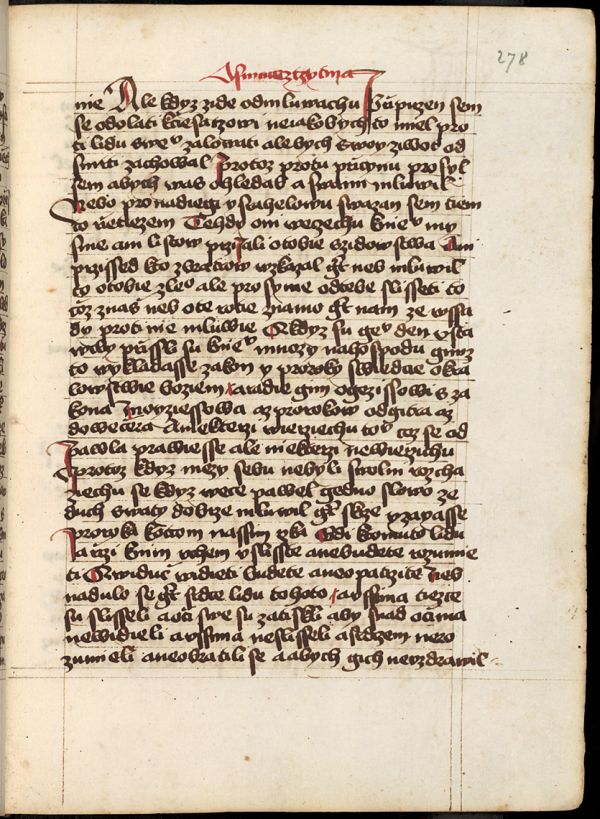 278
nie Ale kdyz zide odmluwachu Przipuzen sem
se odolati k ciesarzowi ne iakobych to miel pro
ti lidu sweº zalowati ale bych swoy ziwot od
smrti zachowal Protoz protu przicinu prosyl
sem abych was ohledal a swami mluwil
Nebo pro nadiegi y srahelowu swazan sem tiem
to rzetiezem Tehdy oni wecechu knieº my
sme ani listow prziyali otobie z zidowstwa Ani
przissed kto z bratrow wzkazal gt neb mluwil
co otobie zleº ale prosyme odtebe slisseti co
coz znas neb ote rotie znamo gt nam ze wssu
dy proti nie mluwie A kdyz su geº den vsta
wily przissli su knieº mnozy nahospodu gimz
to wykladasse zakon y proroky swiedcie o kra
lowstwie boziem a radie gim o gezissowi s za
kona moyziessowa az prorokow od gitra az
do wecera A niekterzi wierziechu toº coz se od
pawla prawiesse ale niekterzi newierziechu
Protoz kdyz mezy sebu nebyli swolni rozcha
ziechu se kdyz wece pawel gedno slowo ze
duch swaty dobrze mluwil gt skrze yzayasse
proroka k otcom nassim rzka Gdi komuto lidu
a rzci knim vchem vslissite a nebudete rozumie
ti A widuc widieti budete a neopatrzite Neb
nadulo se gt srdce lidu tohoto a ussima tiezce
su slisseli a oci swe su zatiskli aby snad ocima
newidieli a ussima neslisseli a srdcem nero
zumieli a neobratili se a abych gich neuzdrawil